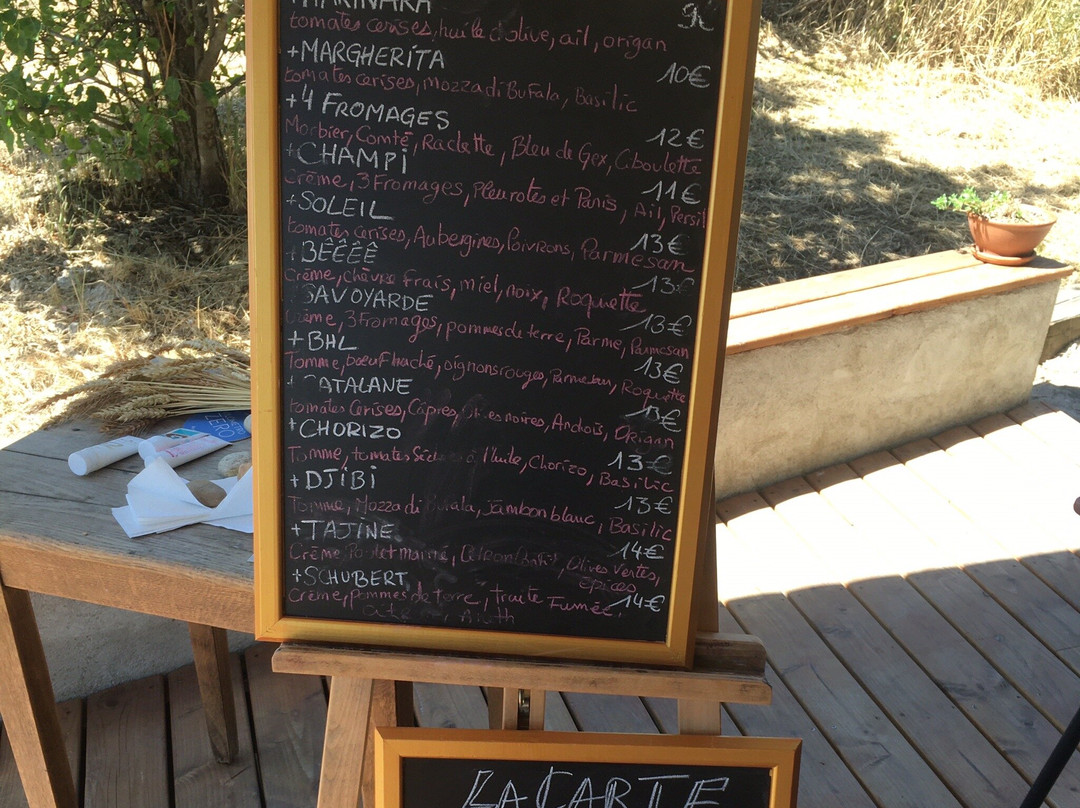 MARINARA 9€
tomates cerises, huile d'olive, ail, origan
+MARGHERITA 10€
tomates cerises, mozza di Bufala, Basilic
+4 FROMAGES 12€
Morbier, Comté, Raclette, Bleu de Gex, Ciboulette
+CHAMPi 11€
Crème, 3 Fromages, Pleurotes et Paris, Ail, Persil
+SOLEIL 13€
tomates cerises, Aubergines, Poivrons, Parmesan
+BÊÊÊÊ 13€
Crème, chèvre frais, miel, noix, Roquette
SAVOYARDE 13€
Crème, 3 Fromages, pommes de terre, Parme, Parmesan
+BHL 13€
Tomme, bœuf haché, oignons rouges, Parmesan, Roquette
CATALANE 13€
tomates Cerises, Câpres, noires, Anchois, Origan
+CHORIZO 13€
Tomme, tomates à l'huile, Chorizo, Basilic
+DJiBi 13€
Tomme, Mozza di Bufala, Jambon blanc, Basilic
+TAJINE 14€
Crème, Poulet mariné, Olives Vertes,
épices
+SCHUBERT 14€
Crème, pommes de terre, truite Fumée,
Aneth
LA CARTE
ZERO